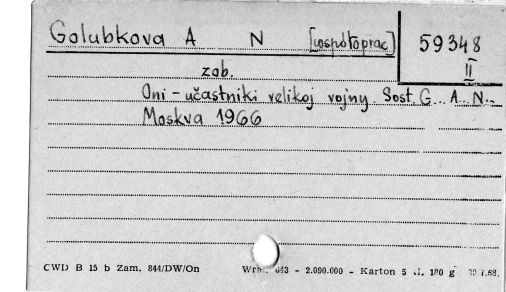 Golubkova A N [współoprac] 59348
II
zob.
Oni - učastniki velikoj vojny. Sost. G. A. N.
Moskva 1966
CWD B 15 b Zam. 844/DW/On - 2.090.000 - Karton 5 kl. 180 g